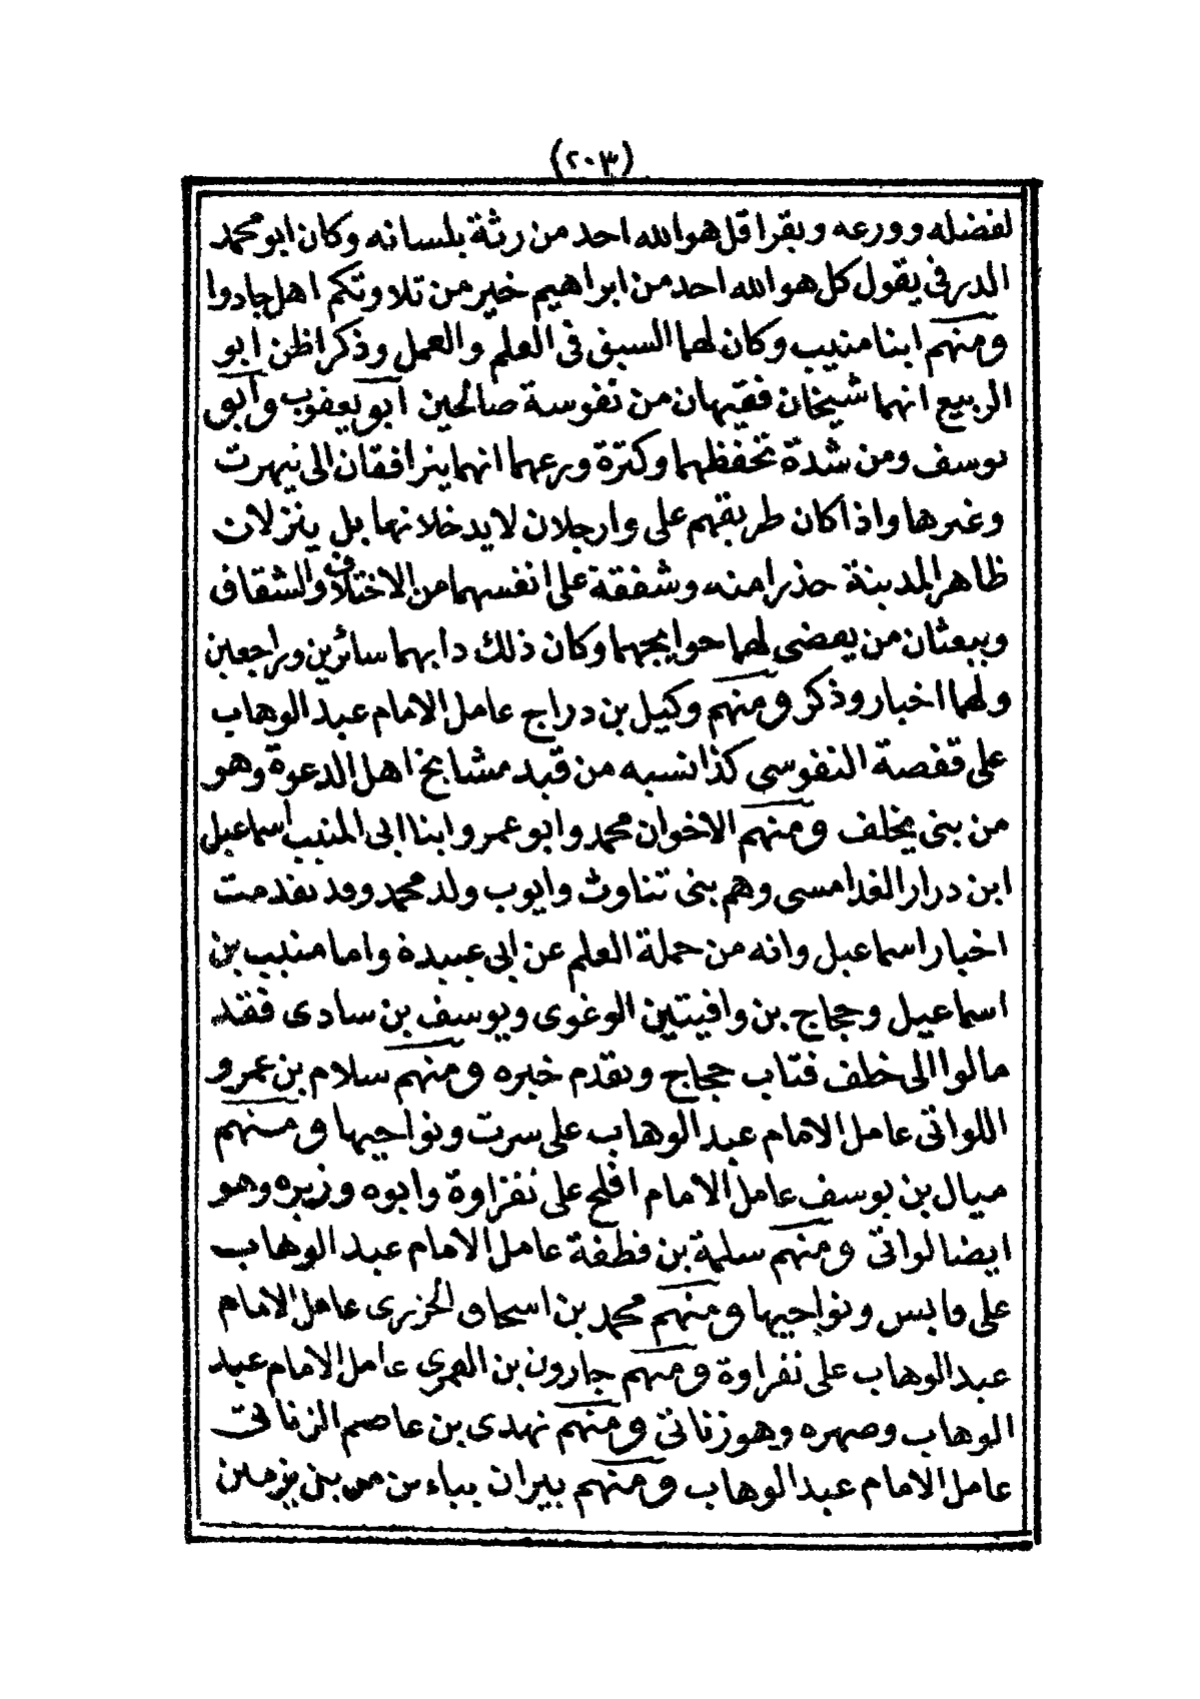 (٢٠٣)
لفضله وورعه ويقرا قل هو الله احد من رثة بلسانه وكان ابو محمد
الدرفى يقول كل هو الله احد من ابراهيم خير من تلاوتكم اهل جادوا
ومنهم ابنا منيب وكان لهما السبق فى العلم والعمل وذكر اظن ابو
الربيع انهما شيخان فقيهان من نفوسة صالحين ابو يعقوب وابو
يوسف ومن شدة تحفظهما وكثرة ورعهما انهما يترافقان الى تيهرت
وغيرها واذا كان طريقهم على وارجلان لا يدخلانها بل ينزلان
ظاهر المدينة حذرا منه وشفقة على انفسهما من الاختلاف والشقاق
ويبعثان من يقضى لهما حوايجهما وكان ذلك دابهما سائرين وراجعين
ولهما اخبار وذكر ومنهم وكيل بن دراج عامل الامام عبد الوهاب
على قفصة النفوسى كذا نسبه من قيد مشايخ اهل الدعوة وهو
من بنى يخلف ومنهم الاخوان محمد وابو عمرو ابنا ابى المنيب اسماعيل
ابن درار الغدامسى وهم بنى تناوت وايوب ولد محمد وقد تقدمت
اخبار اسماعيل وانه من حملة العلم عن ابى عبيدة واما منيب بن
اسماعيل وحجاج بن وافيتين الوغوى ويوسف بن سادى فقد
مالوا الى خلف فتاب حجاج وتقدم خبره ومنهم سلام بن عمرو
اللواتى عامل الامام عبد الوهاب على سرت ونواحيها ومنهم
ميال بن يوسف عامل الامام افلح على نفزاوة وابوه وزيره وهو
ايضا لواتى ومنهم سلمة بن قطفة عامل الامام عبد الوهاب
على قابس ونواحيها ومنهم محمد بن اسحاق الخزرى عامل الامام
عبد الوهاب على نفزاوة ومنهم جارون بن القمرى عامل الامام عبد
الوهاب وصهره وهو زناتى ومنهم نهدى بن عاصم الزناتى
عامل الامام عبد الوهاب ومنهم بيران من بنى يزمرتن